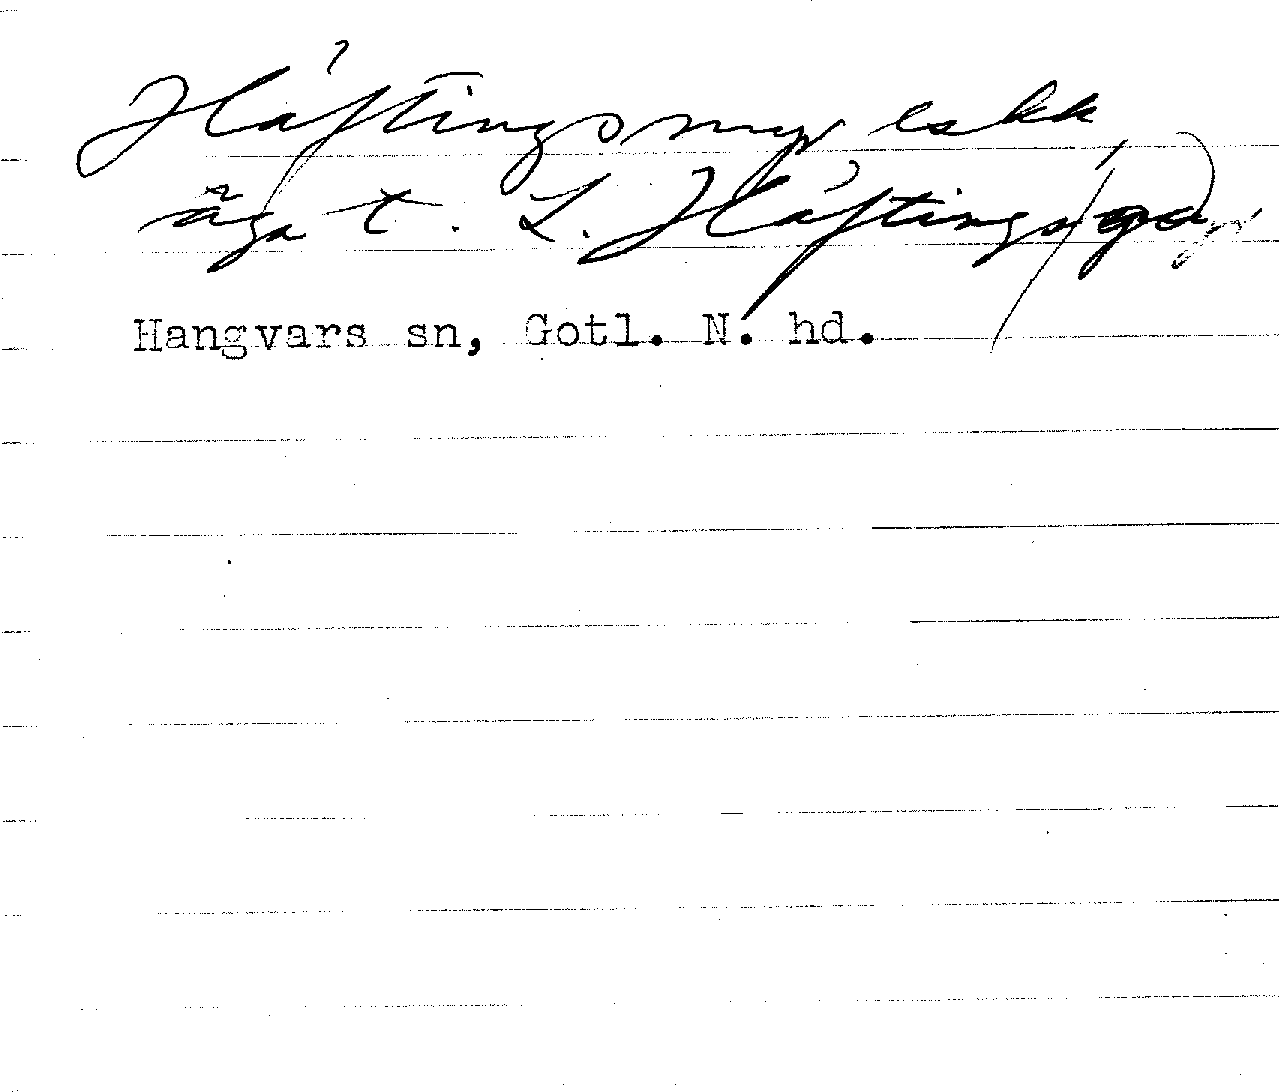 Häftingsmyr eskk,
äga t. L. Häftings (ga
Hangvars sn, Gotl. N. hd.